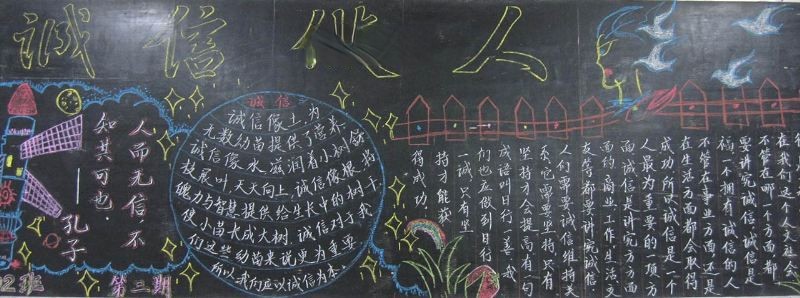 诚信伴人
人而无信不
知其可也.
——孔子
第三期
诚信
诚信像土,为
无数幼苗提供了营养.
诚信像水,滋润着小树舒
枝展叶,天天向上,诚信像根,将
魄力与智慧提供给生长中的树干,
使小苗长成大树.诚信对于我
们这些幼苗来说更为重要.
所以我们应以诚信为本.
在我们这个人文社会
不管在哪一个方面都
要讲究诚信,诚信是
福一个拥有诚信的人
不管在事业方面还是
在生活方面都会取得
成功.所以诚信是一个
人最为重要的一项方
面诚信是讲究方方面
面的商业工作生活交
友等都要讲究诚信.
人们需要诚信维持关
系,它需要坚持,只有
坚持才会提高,有句
成语叫日行一善,我
们也应做到日行
一诚,只有坚
持才能获
得成功.